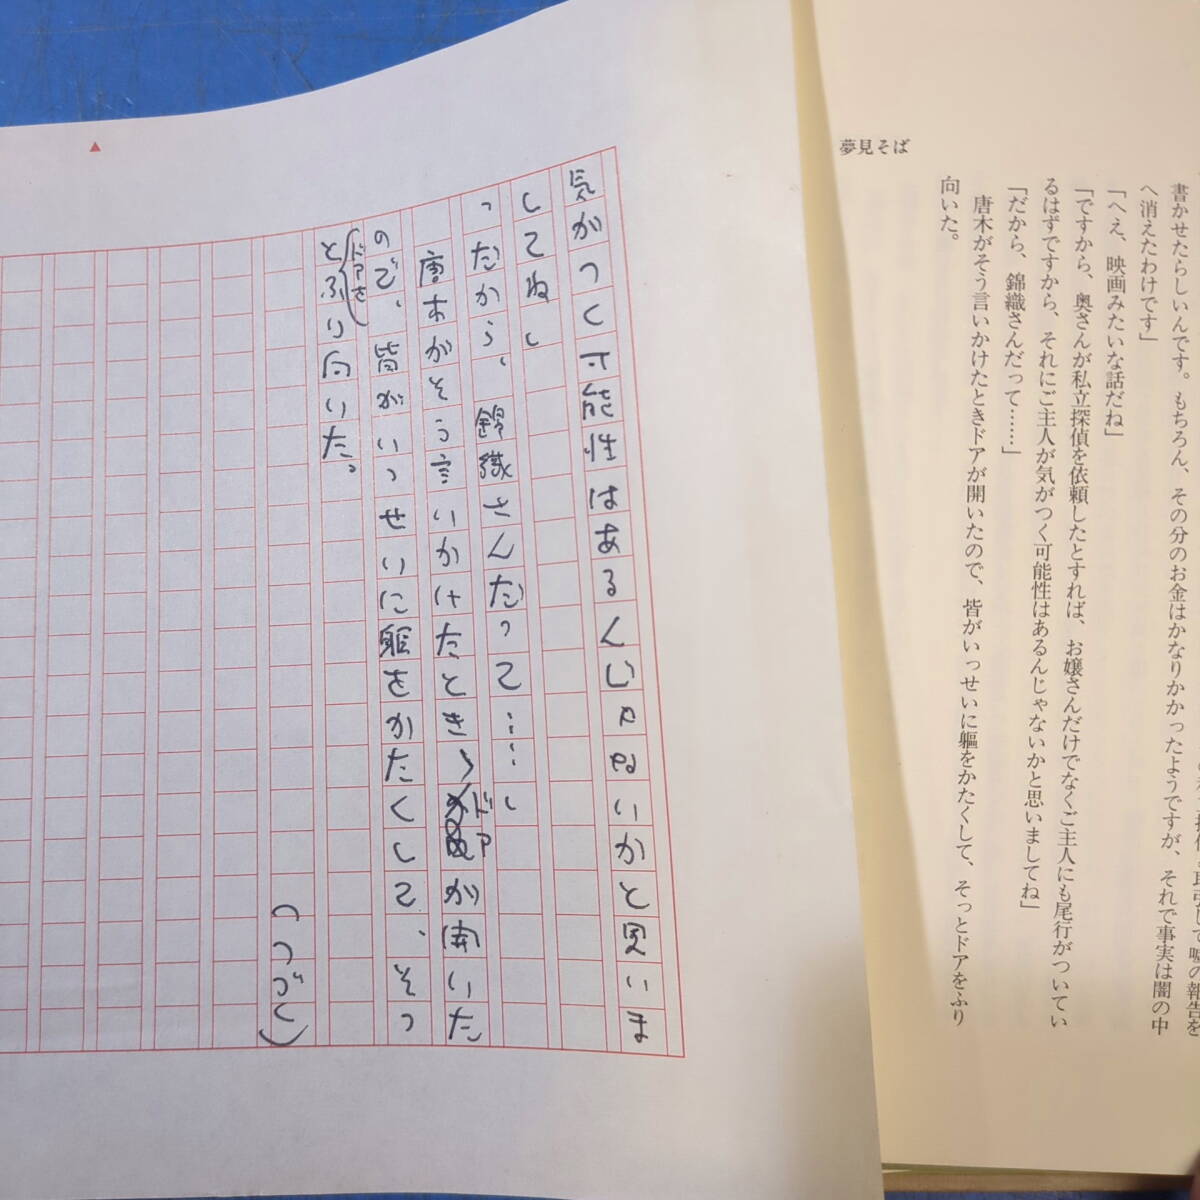 夢見そば
書かせたらしいんです。もちろん、その分のお金はかなりかかったようですが、それで事実は闇の中
へ消えたわけです」
「へえ、映画みたいな話だね」
「ですから、奥さんが私立探偵を依頼したとすれば、お嬢さんだけでなくご主人にも尾行がついてい
るはずですから、それにご主人が気がつく可能性はあるんじゃないかと思いましてね」
「だから、錦織さんだって……」
唐木がそう言いかけたときドアが開いたので、皆がいっせいに軀をかたくして、そっとドアをふり
向いた。
気がつく可能性はあるんじゃないかと思いま
してね」
「だから、錦織さんだって……」
唐木がそう言いかけたときドアが開いた
ので、皆がいっせいに軀をかたくして、そっ
とドアをふり向いた。
(つづく)